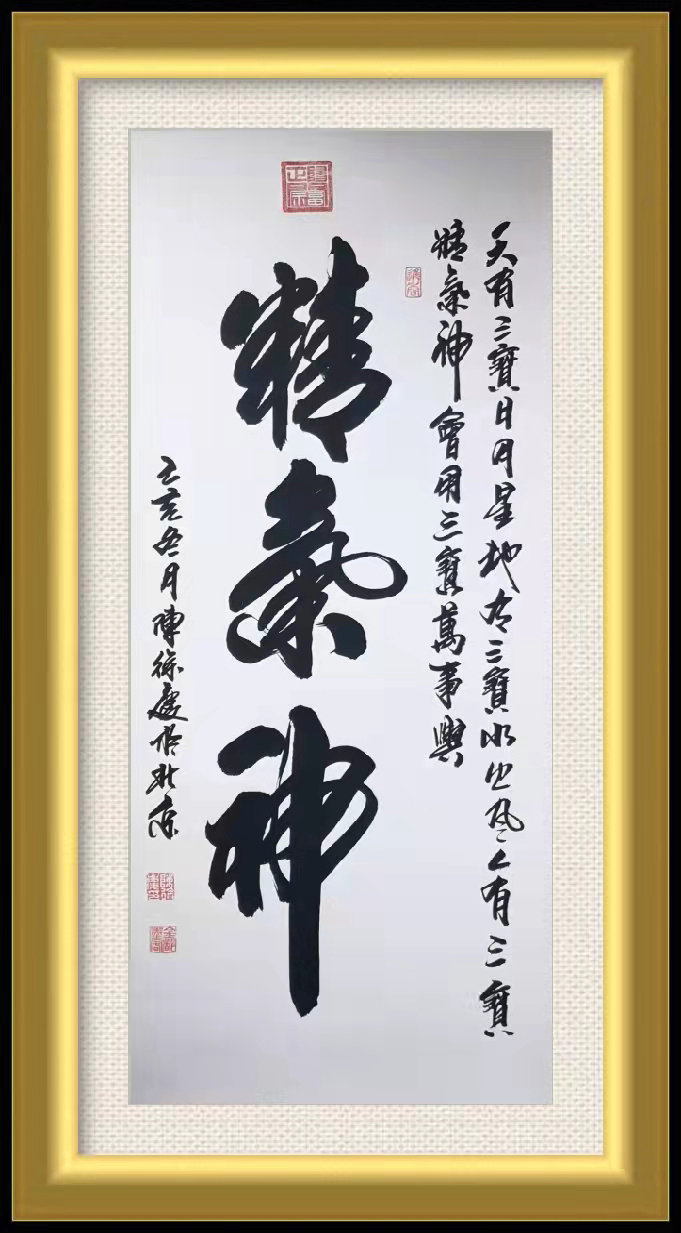 天有三寶日月星地有三寶水火風人有三寶
精氣神會用三寶萬事興
精氣神
己亥冬月陳徐慶於北京